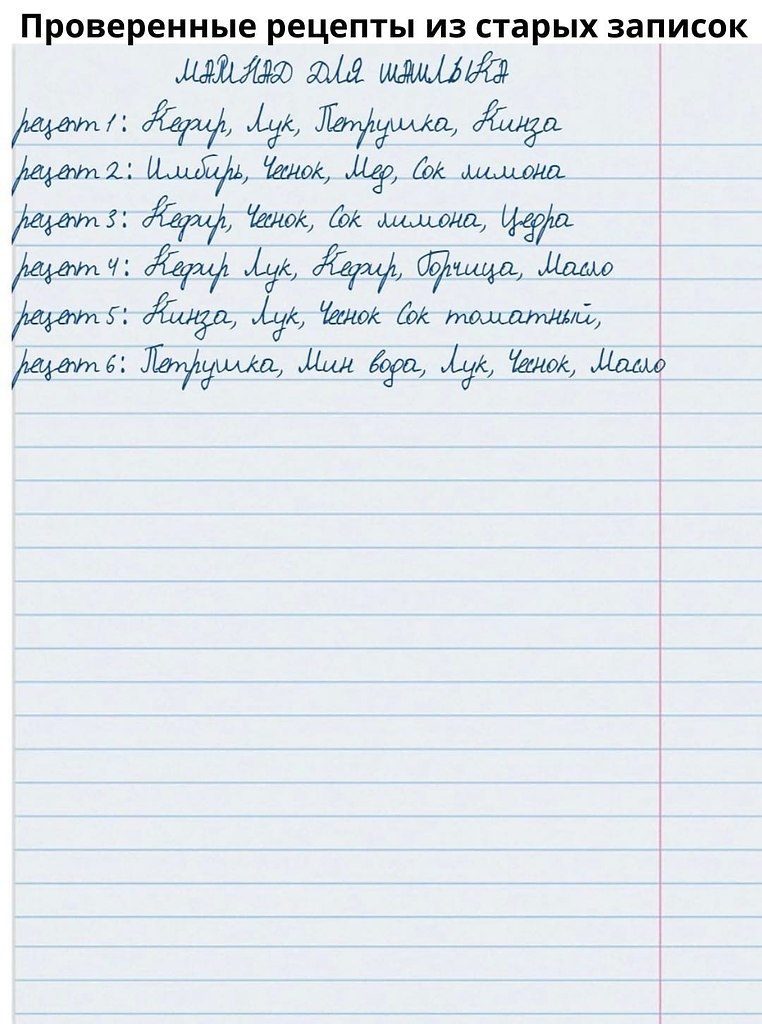 Проверенные рецепты из старых записок
МАРИНАД ДЛЯ ШАШЛЫКА
рецепт 1: Кефир, Лук, Петрушка, Кинза
рецепт 2: Имбирь, Чеснок, Мед, Сок лимона
рецепт 3: Кефир, Чеснок, Сок лимона, Цедра
рецепт 4: Кефир Лук, Кефир, Горчица, Масло
рецепт 5: Кинза, Лук, Чеснок Сок томатный,
рецепт 6: Петрушка, Мин вода, Лук, Чеснок, Масло